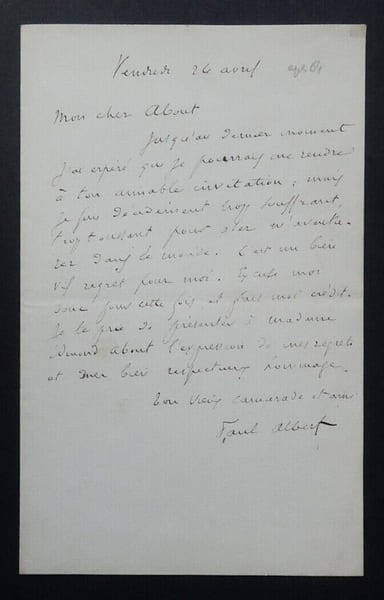 Vendredi 26 avril
Mon cher About
Jusqu'au dernier moment
j'ai espéré que je pourrais me rendre
à ton aimable invitation ; mais
je suis décidément trop souffrant,
trop toussant pour oser m'aventu-
rer dans le monde. C'est un bien
vif regret pour moi. Excuse moi
donc pour cette fois et fais moi crédit.
Je te prie de présenter à madame
Edmond About l'expression de mes regrets
et mes bien respectueux hommages.
Ton vieux camarade et ami
Paul Albert